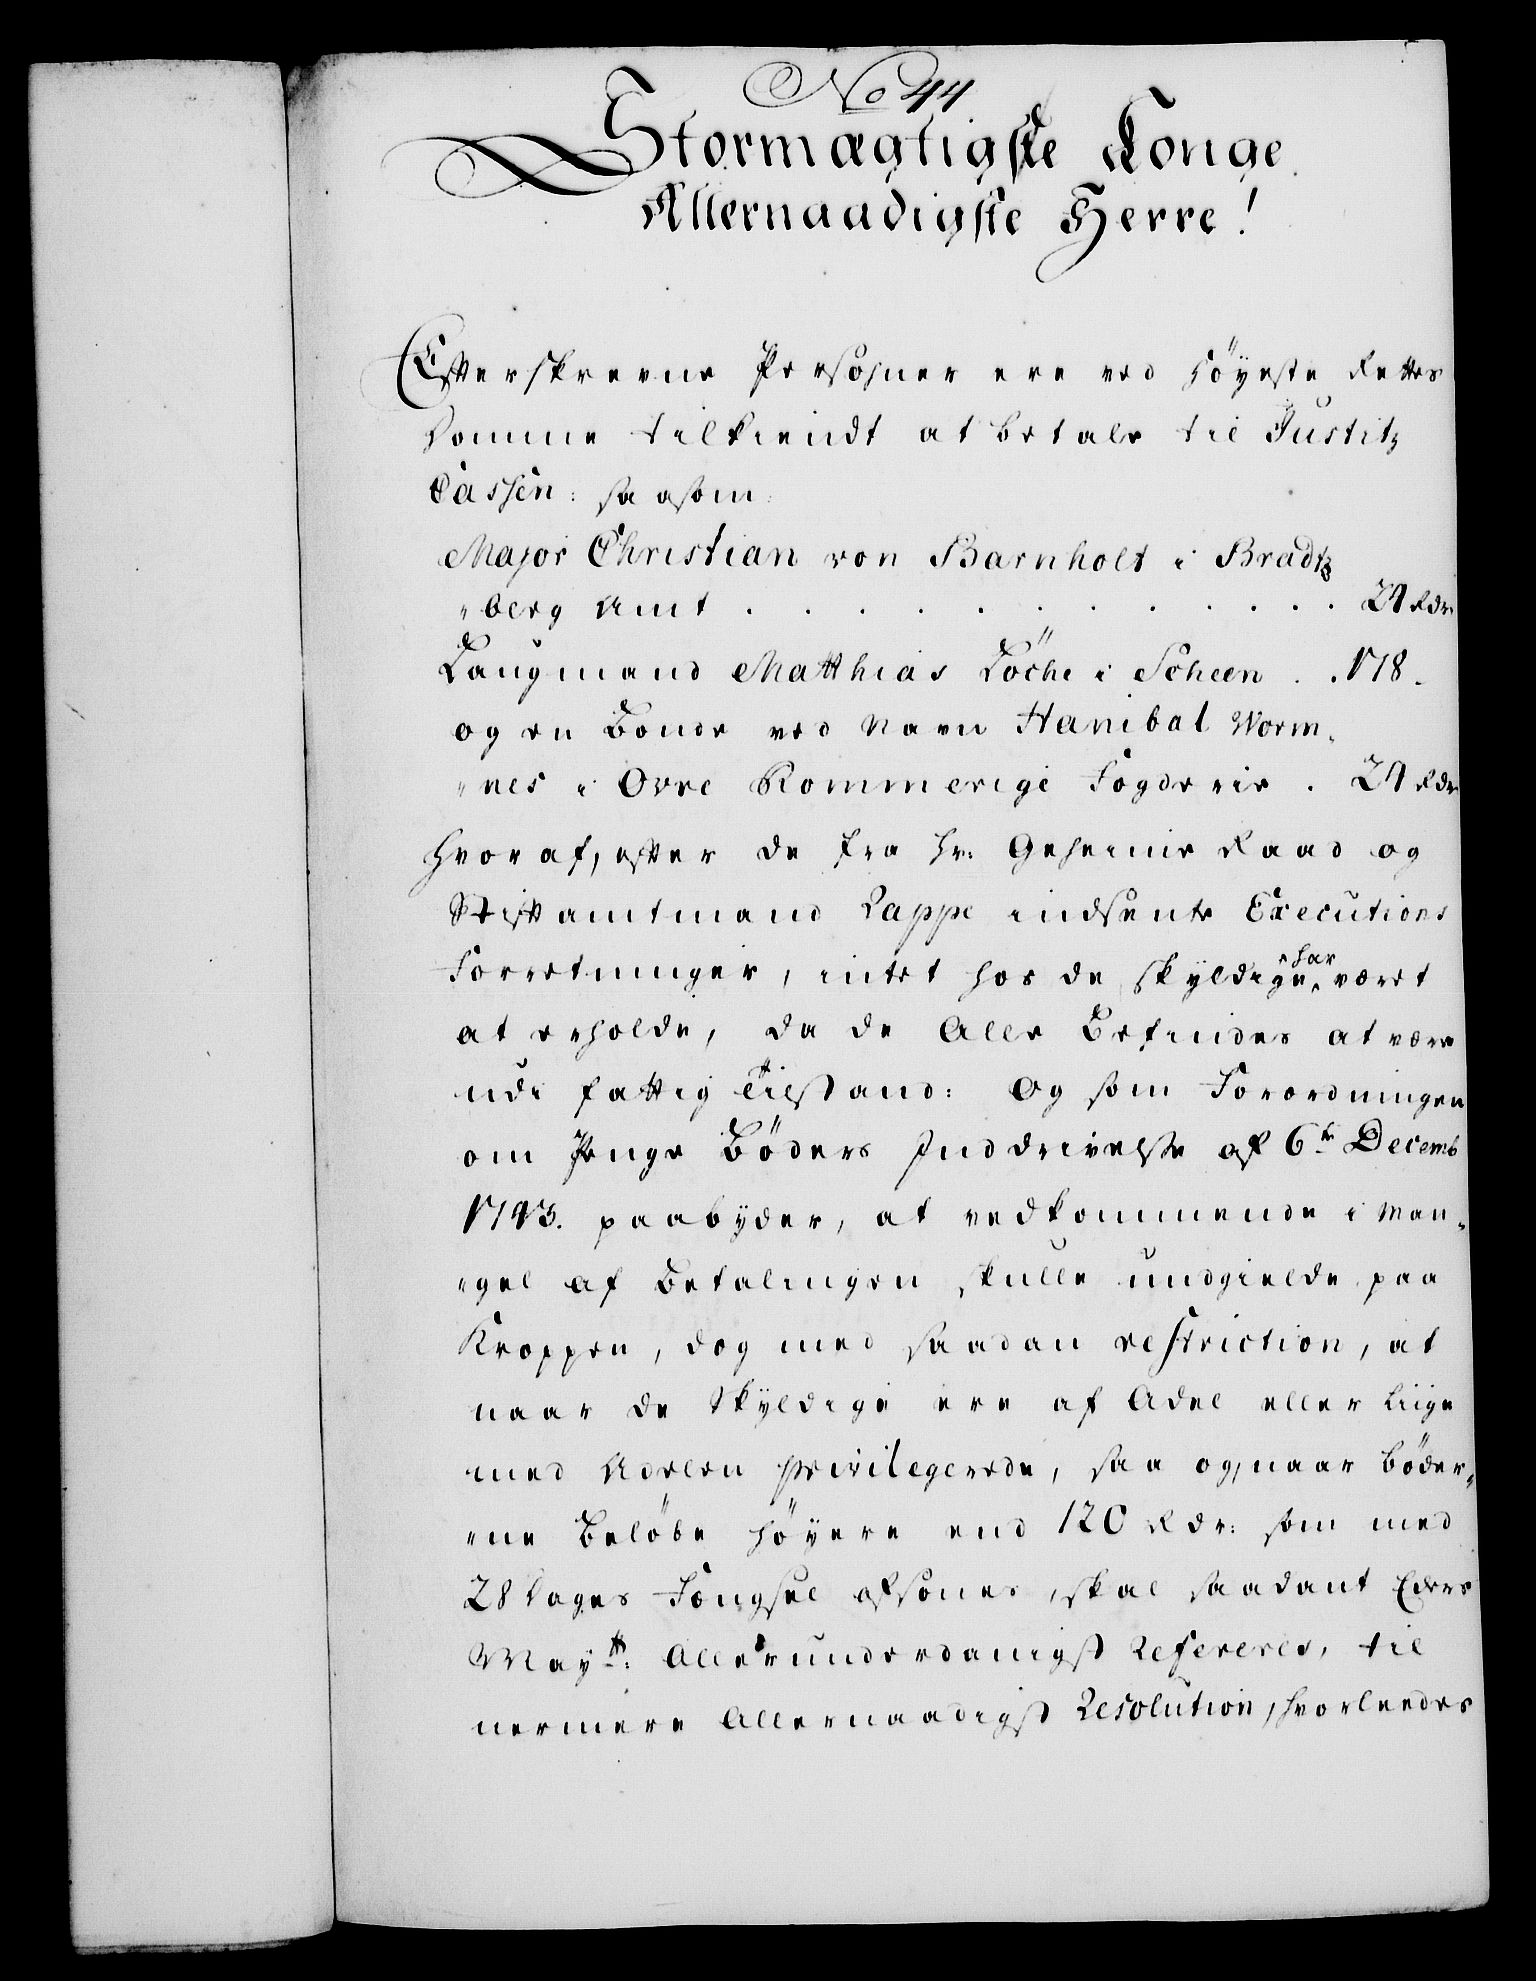 No 44
Stormægtigste Konge
Allernaadigste Herre!
Efterskrevne Persohner ere ved Höyeste Rettes
Domme tilkiendt at betale til Justitz
Cassen: saasom:
Major Christian von Barnholt i Bradtz
"berg Amt . . . . . . . . . . . 24 Rdr
Laugmand Matthias Löche i Scheen . . 178.
og en Bonde ved Navn Hanibal Worm"
"nes i Ovre Rommerige Fogderie . 24 Rdr
hvoraf, efter de fra Hr: Geheime Raad og
Stiftamtmand Rappe indsente Executions
Forretninger, intet hos de skyldige har været
at erholde, da de Alle Befindes at være
udi fattig Tilstand: Og som Forordningen
om Penge Böders Inddrivelse af 6te Decemb
1743. paabyder, at vedkommende i Man"
"gel af Betalingen skulle undgielde paa
Kroppen, dog med saadan restriction, at
naar de Skyldige ere af Adel eller Liige
med Adelen privilegerede, saa og, naar Böder"
"ne Belöbe höyere end 120 Rdr: som med
28 Dages Fængsel afsones, skal saadant Eders
Mayt: Allerunderdanigst Refereres, til
nermere Allernaadigst Resolution, hvorleedes